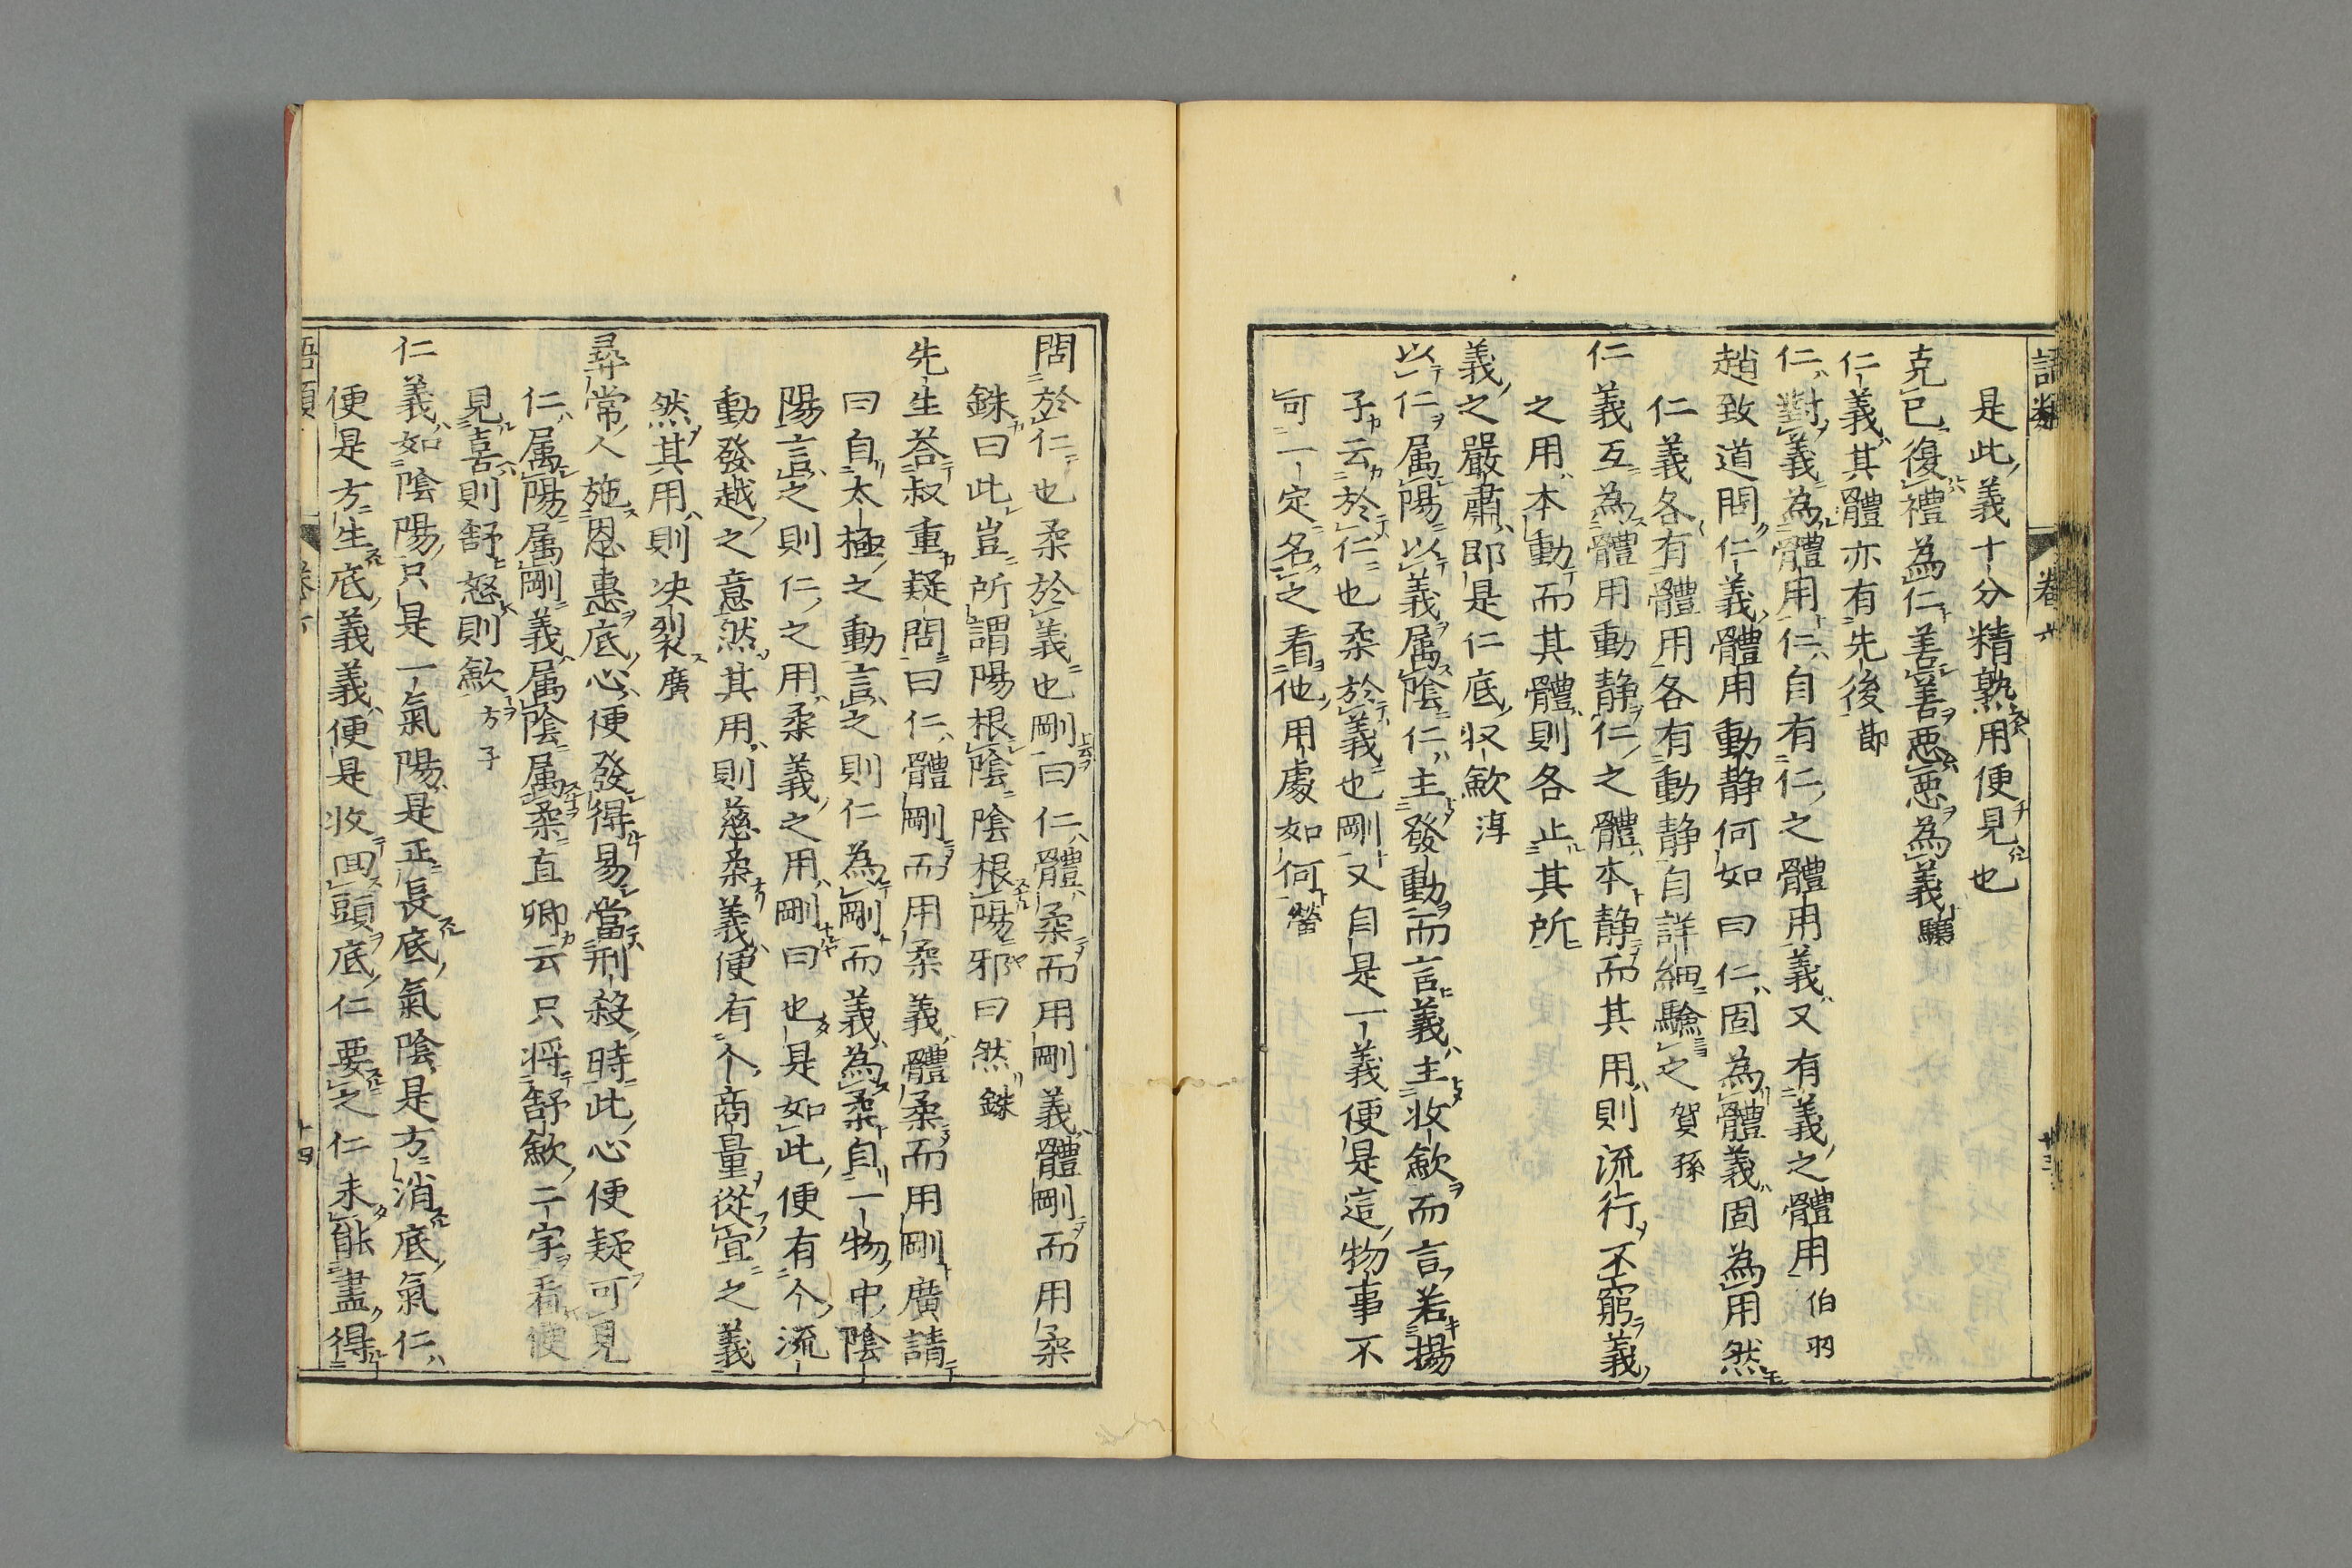 語類 卷六 廿三
是此義十分精熟用便見也
克己復禮為仁善善惡惡為義驤
仁義其體亦有先後節
仁對義為體用仁自有仁之體用義又有義之體用伯羽
趙致道問仁義體用動静何如曰仁固為體義固為用然
仁義各有體用各有動静自詳細驗之賀孫
仁義互為體用動静仁之體本静而其用則流行不窮義
之用本動而其體則各止其所
義之嚴肅即是仁底收歛淳
以仁属陽以義属陰仁主發動而言義主收歛而言若揚
子云於仁也柔於義也剛又自是一義便是這物事不
可一定名之看他用處如何㽦
問於仁也柔於義也剛曰仁體柔而用剛義體剛而用柔
銖曰此豈所謂陽根陰陰根陽邪曰然銖
先生荅叔重疑問曰仁體剛而用柔義體柔而用剛廣請
曰自太極之動言之則仁為剛而義為柔自一物中陰
陽言之則仁之用柔義之用剛曰也是如此便有个流
動發越之意然其用則慈柔義便有个商量從宜之義
然其用則决裂廣
尋常人施恩惠底心便發得易當刑殺時此心便疑可見
仁属陽属剛義属陰属柔直卿云只将舒歛二字看便
見喜則舒怒則歛方子
仁義如陰陽只是一氣陽是正長底氣陰是方消底氣仁
便是方生底義義便是收回頭底仁要之仁未能盡得
語類 卷六 十四